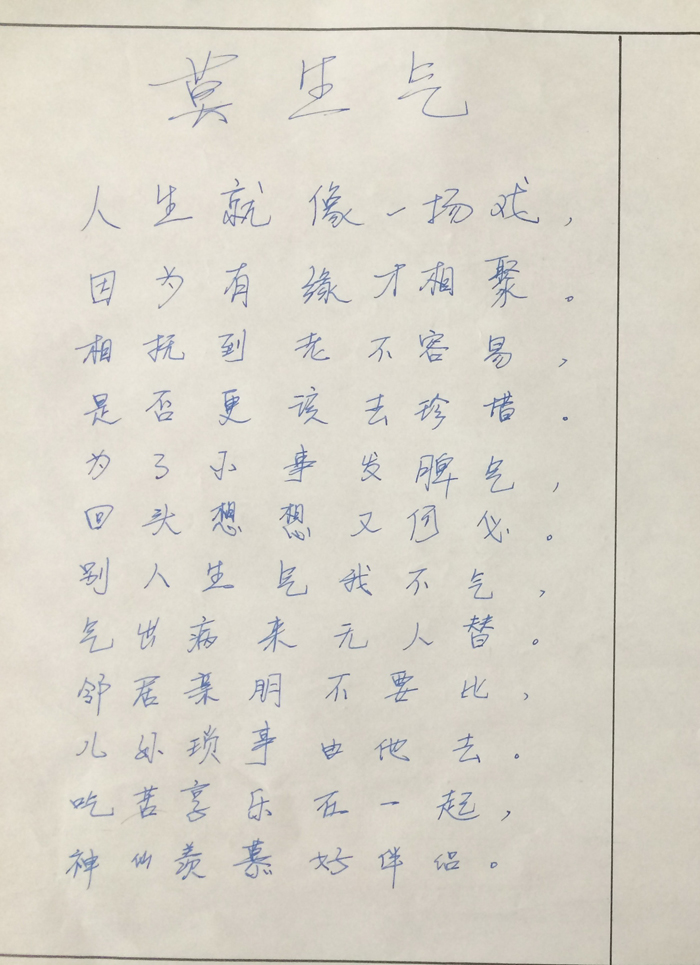 莫生气
人生就像一场戏，
因为有缘才相聚。
相扶到老不容易，
是否更该去珍惜。
为了小事发脾气，
回头想想又何必。
别人生气我不气，
气出病来无人替。
邻居亲朋不要比，
儿孙琐事由他去。
吃苦享乐在一起，
神仙羡慕好伴侣。